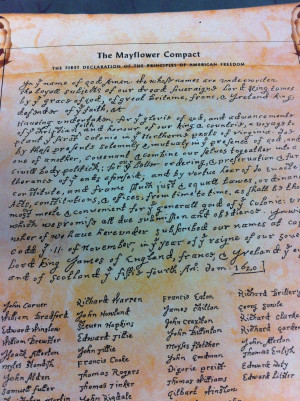 The Mayflower Compact
THE FIRST DECLARATION OF THE PRINCIPLES OF AMERICAN FREEDOM
In yᵉ name of god Amen. We whose names are underwriten
the loyall subjects of our dread soveraigne Lord King James
by yᵉ grace of god, of great Britaine, franc, & Ireland king,
defender of yᵉ faith, &c
Haveing undertaken, for yᵉ glorie of god, and advancemente
of yᵉ christian and honour of our king & countrie, a voyage to
plant yᵉ first colonie in yᵉ Northerne parts of virginia. doe
by these presents solemnly & mutualy in yᵉ presence of god and
one of another, covenant & combine our selves togeather into a
civill body politick; for our better ordering, & preservation & fur
therance of yᵉ ends aforesaid; and by vertue hearof to enacte
constitute, and frame such just & equall lawes, ordinances
Acts, constitutions, & offices, from time to time, as shall be thought
most meete & convenient for yᵉ generall good of yᵉ Colonie: unto
which we promise all due submission and obedience. In witnes
wherof we have hereunder subscribed our names at cap
codd yᵉ 11 of November, in yᵉ year of yᵉ raigne of our sove
Lord king James of England, france, & Ireland yᵉ
and of Scotland yᵉ fiftie fourth. Ano. Dom. 1620
John Carver Richard Warren Francis Eaton
William Bradford John Howland James Chilton
Edward Winslow Steven Hopkins John Crackton Richard
William Brewster Edward Tillie John Billinton Richard
Isaack Allerton John Tillie Moyses Fletcher John
Myles Standish Francis Cooke John Goodman Thomas English
John Alden Thomas Rogers Digerie Priest Edward
Samuel Fuller Thomas Tinker Thomas Williams Edward Lister
John Rigdale Gilbert Winslow